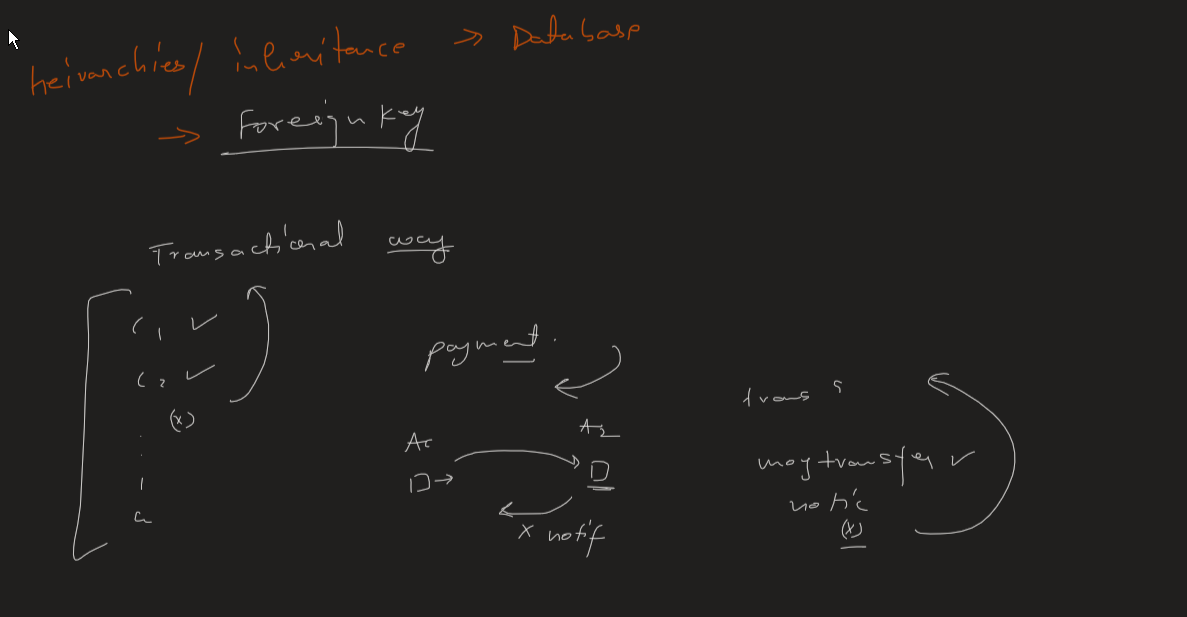 heirarchies/ inheritance → Database
→ Foreign key
Transactional way
C1 ✓
C2 ✓
(x)
payment.
A1
A2
D →
D
x notif
trans {
moy transfer ✓
notic
(x)